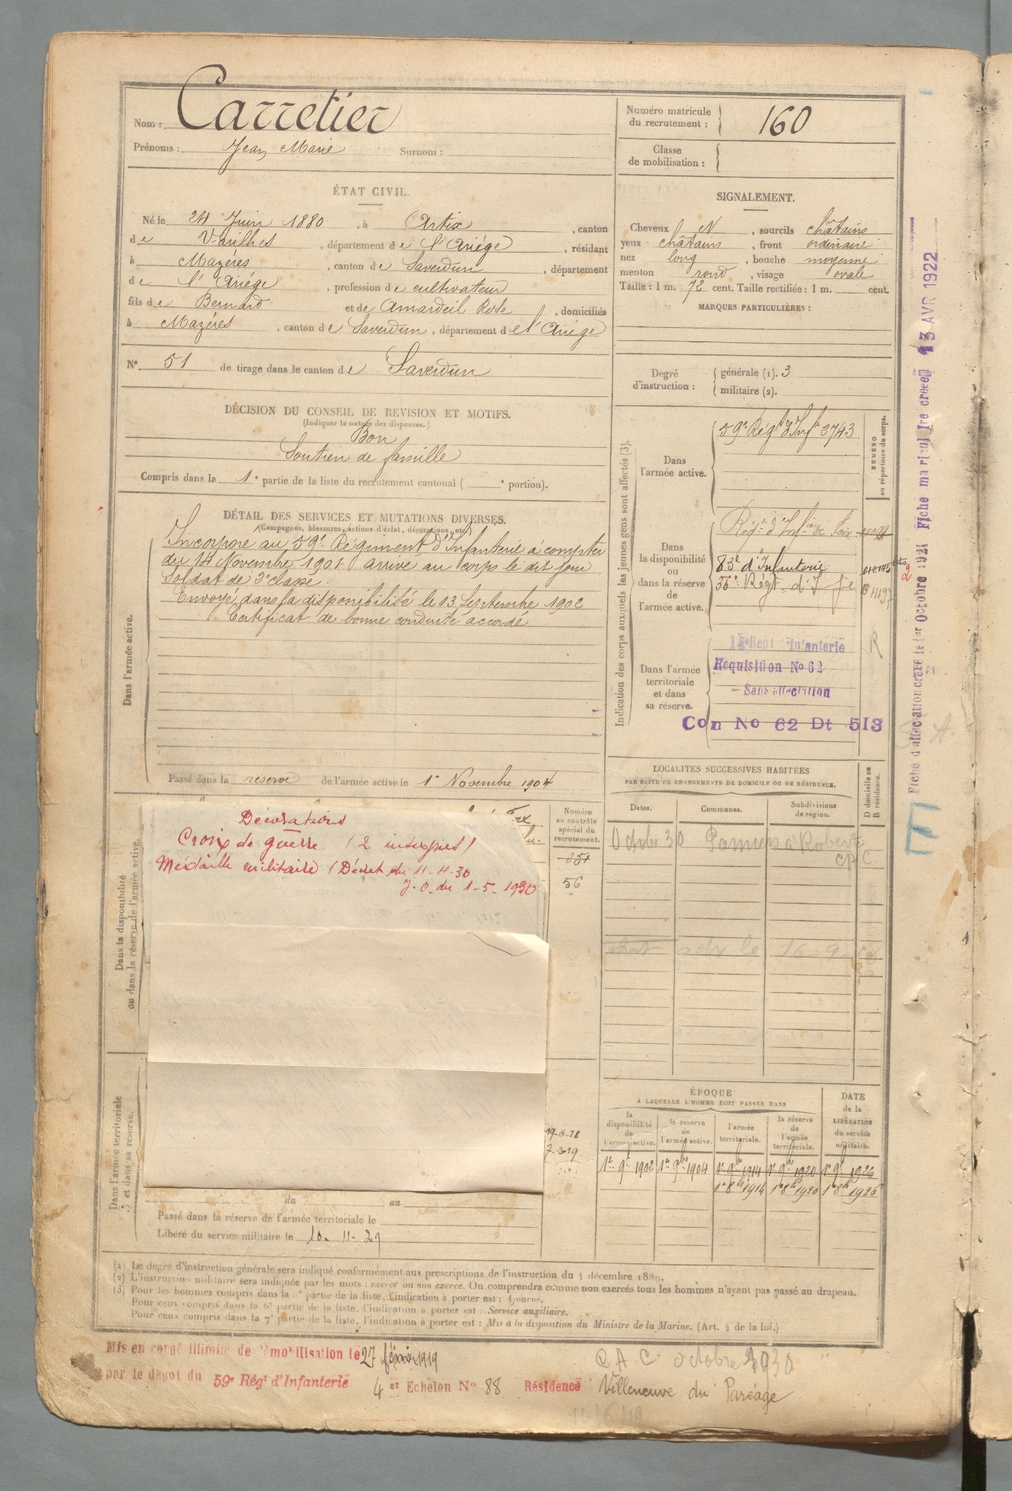 Nom : Carretier
Prénoms : Jean Marie Surnom :
ÉTAT CIVIL.
Né le 24 Juin 1880, à Artix, canton
de Varilhes, département de l'Ariège, résidant
à Mazères, canton de Saverdun, département
de l'Ariège, profession de cultivateur
fils de Bernard et de Amardeil Rose, domiciliés
à Mazères, canton de Saverdun, département de l'Ariège
N° 51 de tirage dans le canton de Saverdun
DÉCISION DU CONSEIL DE REVISION ET MOTIFS.
(Indiquer la nature des dispenses.)
Bon
Soutien de famille
Compris dans la 1e partie de la liste du recrutement cantonal ( e portion).
DÉTAIL DES SERVICES ET MUTATIONS DIVERSES.
(Campagnes, blessures, actions d'éclat, décorations, etc.)
Incorporé au 59e Régiment d'Infanterie à compter
du 14 Novembre 1901 arrivé au corps le dit jour
Soldat de 2e classe.
Envoyé dans la disponibilité le 13 Septembre 1902
Certificat de bonne conduite accordé
Dans l'armée active.
Passé dans la réserve de l'armée active le 1er Novembre 1904
Dans la disponibilité
ou dans la réserve de l'armée active.
Décorations
Croix de guerre (2 )
Médaille militaire (Décret du 11-4-30
J.O. du 1-5-1930
Numéro
au contrôle
spécial du
recrutement.
56
19-6-18
Dans l'armée territoriale
et dans sa réserve.
du au
Passé dans la réserve de l'armée territoriale le
Libéré du service militaire le 10-11-29
Numéro matricule
du recrutement : 160
Classe
de mobilisation :
SIGNALEMENT.
Cheveux N, sourcils châtains
yeux châtains, front ordinaire
nez long, bouche moyenne
menton rond, visage ovale
Taille : 1 m. 72 cent. Taille rectifiée : 1 m. cent.
MARQUES PARTICULIÈRES :
Degré
d'instruction :
générale (1). 3
militaire (2).
Indication des corps auxquels les jeunes gens sont affectés (3).
NUMÉRO
au répertoire du corps.
Dans
l'armée active.
59e Régt d'Infie 3743
Dans
la disponibilité
ou
dans la réserve
de
l'armée active.
Régt d'Infie de Foix
83e d'Infanterie
Dans l'armée
territoriale
et dans
sa réserve.
Requisition No 62
Sans affectation
R
Con No 62 Dt 513
Fiche d'affectation créée le 1er Octobre 1921 Fiche matricule créée 13 AVR 1922
LOCALITÉS SUCCESSIVES HABITÉES
PAR SUITE DE CHANGEMENTS DE DOMICILE OU DE RÉSIDENCE.
Dates.
Communes.
Subdivisions
de région.
D domicile ou
R résidence.
Octobre 30 Pamiers
ÉPOQUE
À LAQUELLE L'HOMME DOIT PASSER DANS
la
disponibilité
de
l'armée active.
la réserve
de
l'armée active.
l'armée
territoriale.
la réserve
de
l'armée
territoriale.
DATE
de la
LIBÉRATION
du service
militaire.
1er 9bre 1902 1er 9bre 1904 1er 9bre 1914 1er 9bre 1920 1er 9bre 1926
1er 8bre 1914 1er 8bre 1920 1er 8bre 1926
(1) Le degré d'instruction générale sera indiqué conformément aux prescriptions de l'instruction du 4 décembre 1889.
(2) L'instruction militaire sera indiquée par les mots : exercé ou non exercé. On comprendra comme non exercés tous les hommes n'ayant pas passé au drapeau.
(3) Pour les hommes compris dans la 5e partie de la liste, l'indication à porter est : Ajourné.
Pour ceux compris dans la 6e partie de la liste, l'indication à porter est : Service auxiliaire.
Pour ceux compris dans la 7e partie de la liste, l'indication à porter est : Mis à la disposition du Ministre de la Marine. (Art. 4 de la loi.)
Mis en congé illimité de démobilisation le 27 février 1919
par le dépôt du 59e Régt d'Infanterie
4 er Echelon No 88 Résidence Villeneuve du Paréage
C.A.C. octobre 1930